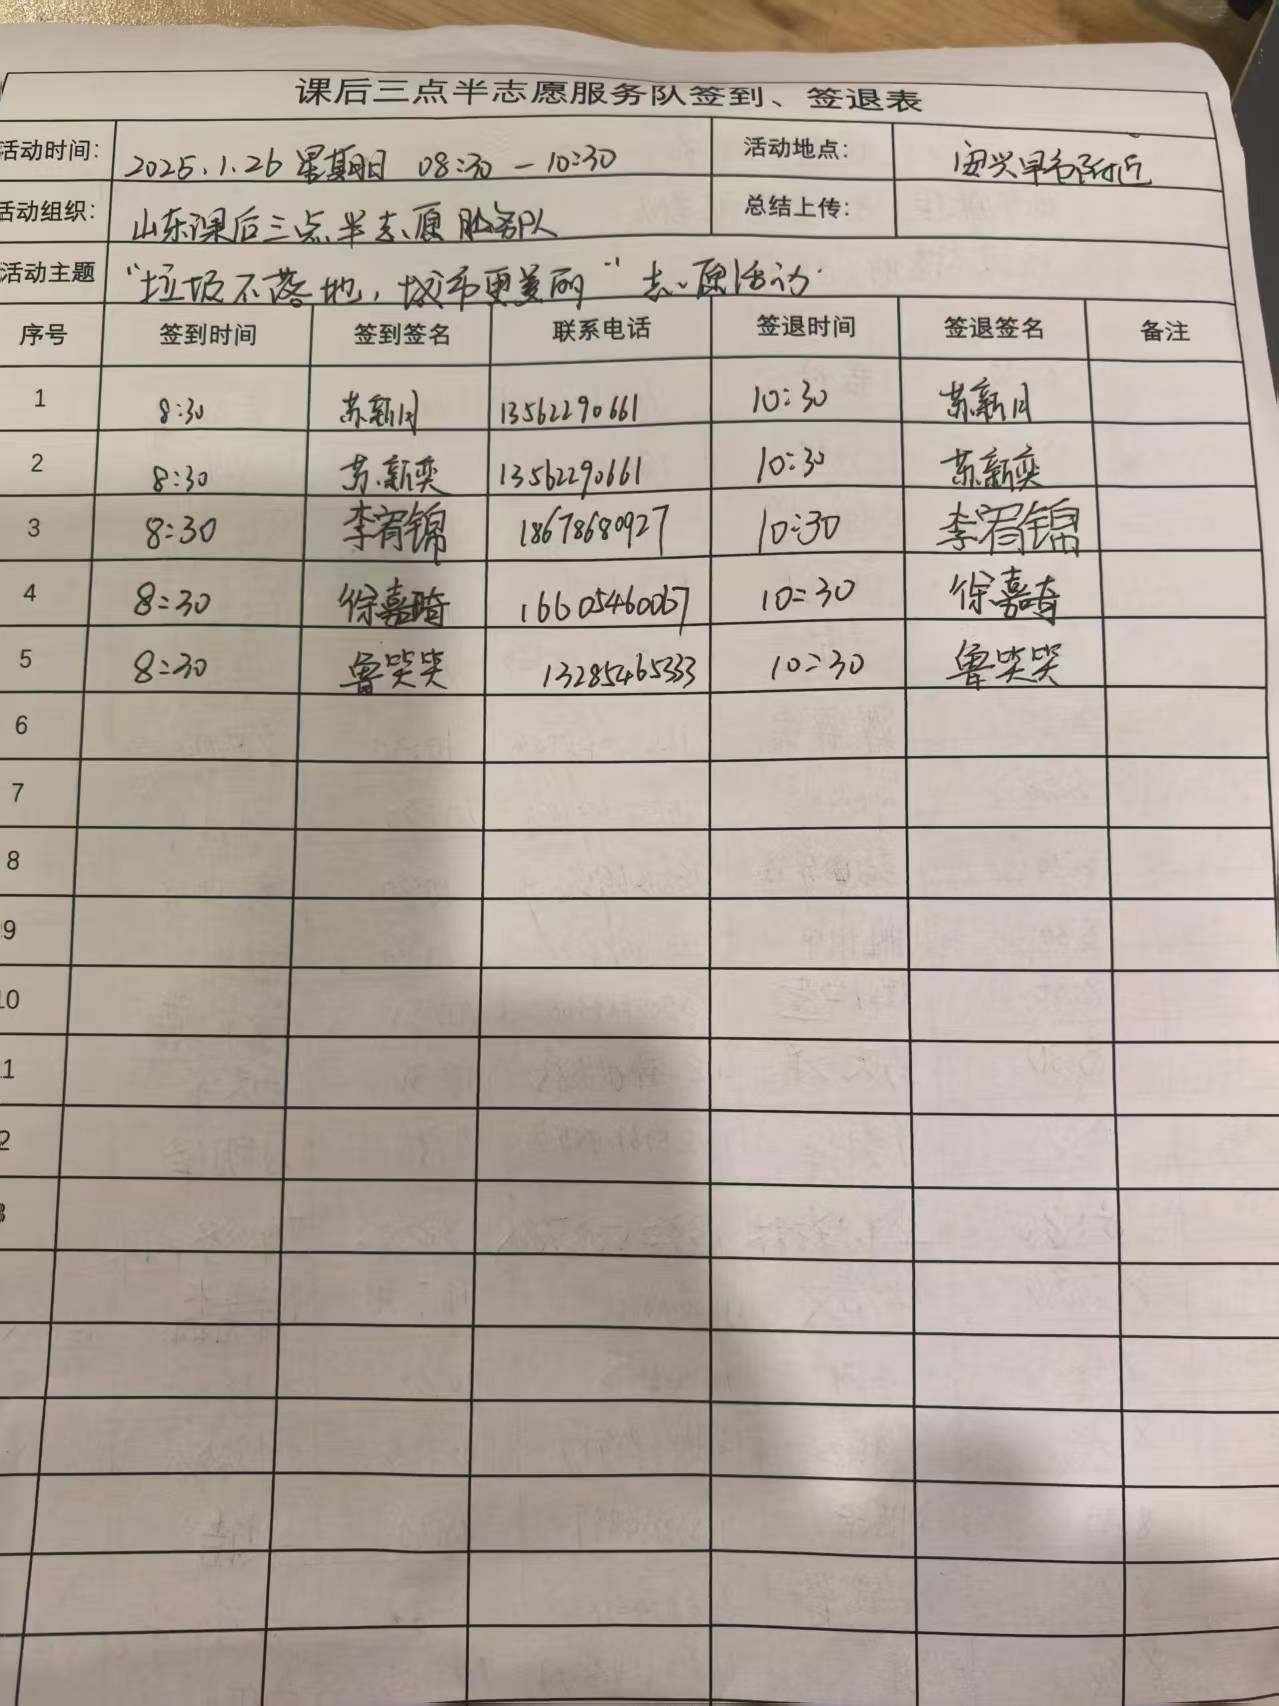 课后三点半志愿服务队签到、签退表
活动时间: 2025.1.26 星期日 08:30 — 10:30 活动地点: 安兴早市附近
活动组织: 山东课后三点半志愿服务队 总结上传:
活动主题 “垃圾不落地,城市更美丽” 志愿活动
序号 签到时间 签到签名 联系电话 签退时间 签退签名 备注
1 8:30 苏新月 13562290661 10:30 苏新月
2 8:30 苏新奕 13562290661 10:30 苏新奕
3 8:30 李宥锦 18678680927 10:30 李宥锦
4 8:30 徐嘉琦 16605460067 10:30 徐嘉琦
5 8:30 鲁笑笑 13285465333 10:30 鲁笑笑
6
7
8
9
10
1
2
3